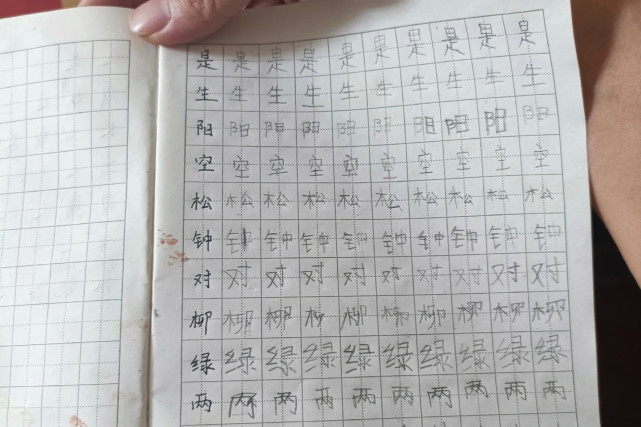 是 是 是 是 是 是 是 是 是 是
生 生 生 生 生 生 生 生 生 生
阳 阳 阳 阳 阳 阳 阳 阳 阳 阳
空 空 空 空 空 空 空 空 空 空
松 松 松 松 松 松 松 松 松 松
钟 钟 钟 钟 钟 钟 钟 钟 钟 钟
对 对 对 对 对 对 对 对 对 对
柳 柳 柳 柳 柳 柳 柳 柳 柳 柳
绿 绿 绿 绿 绿 绿 绿 绿 绿 绿
两 两 两 两 两 两 两 两 两 两